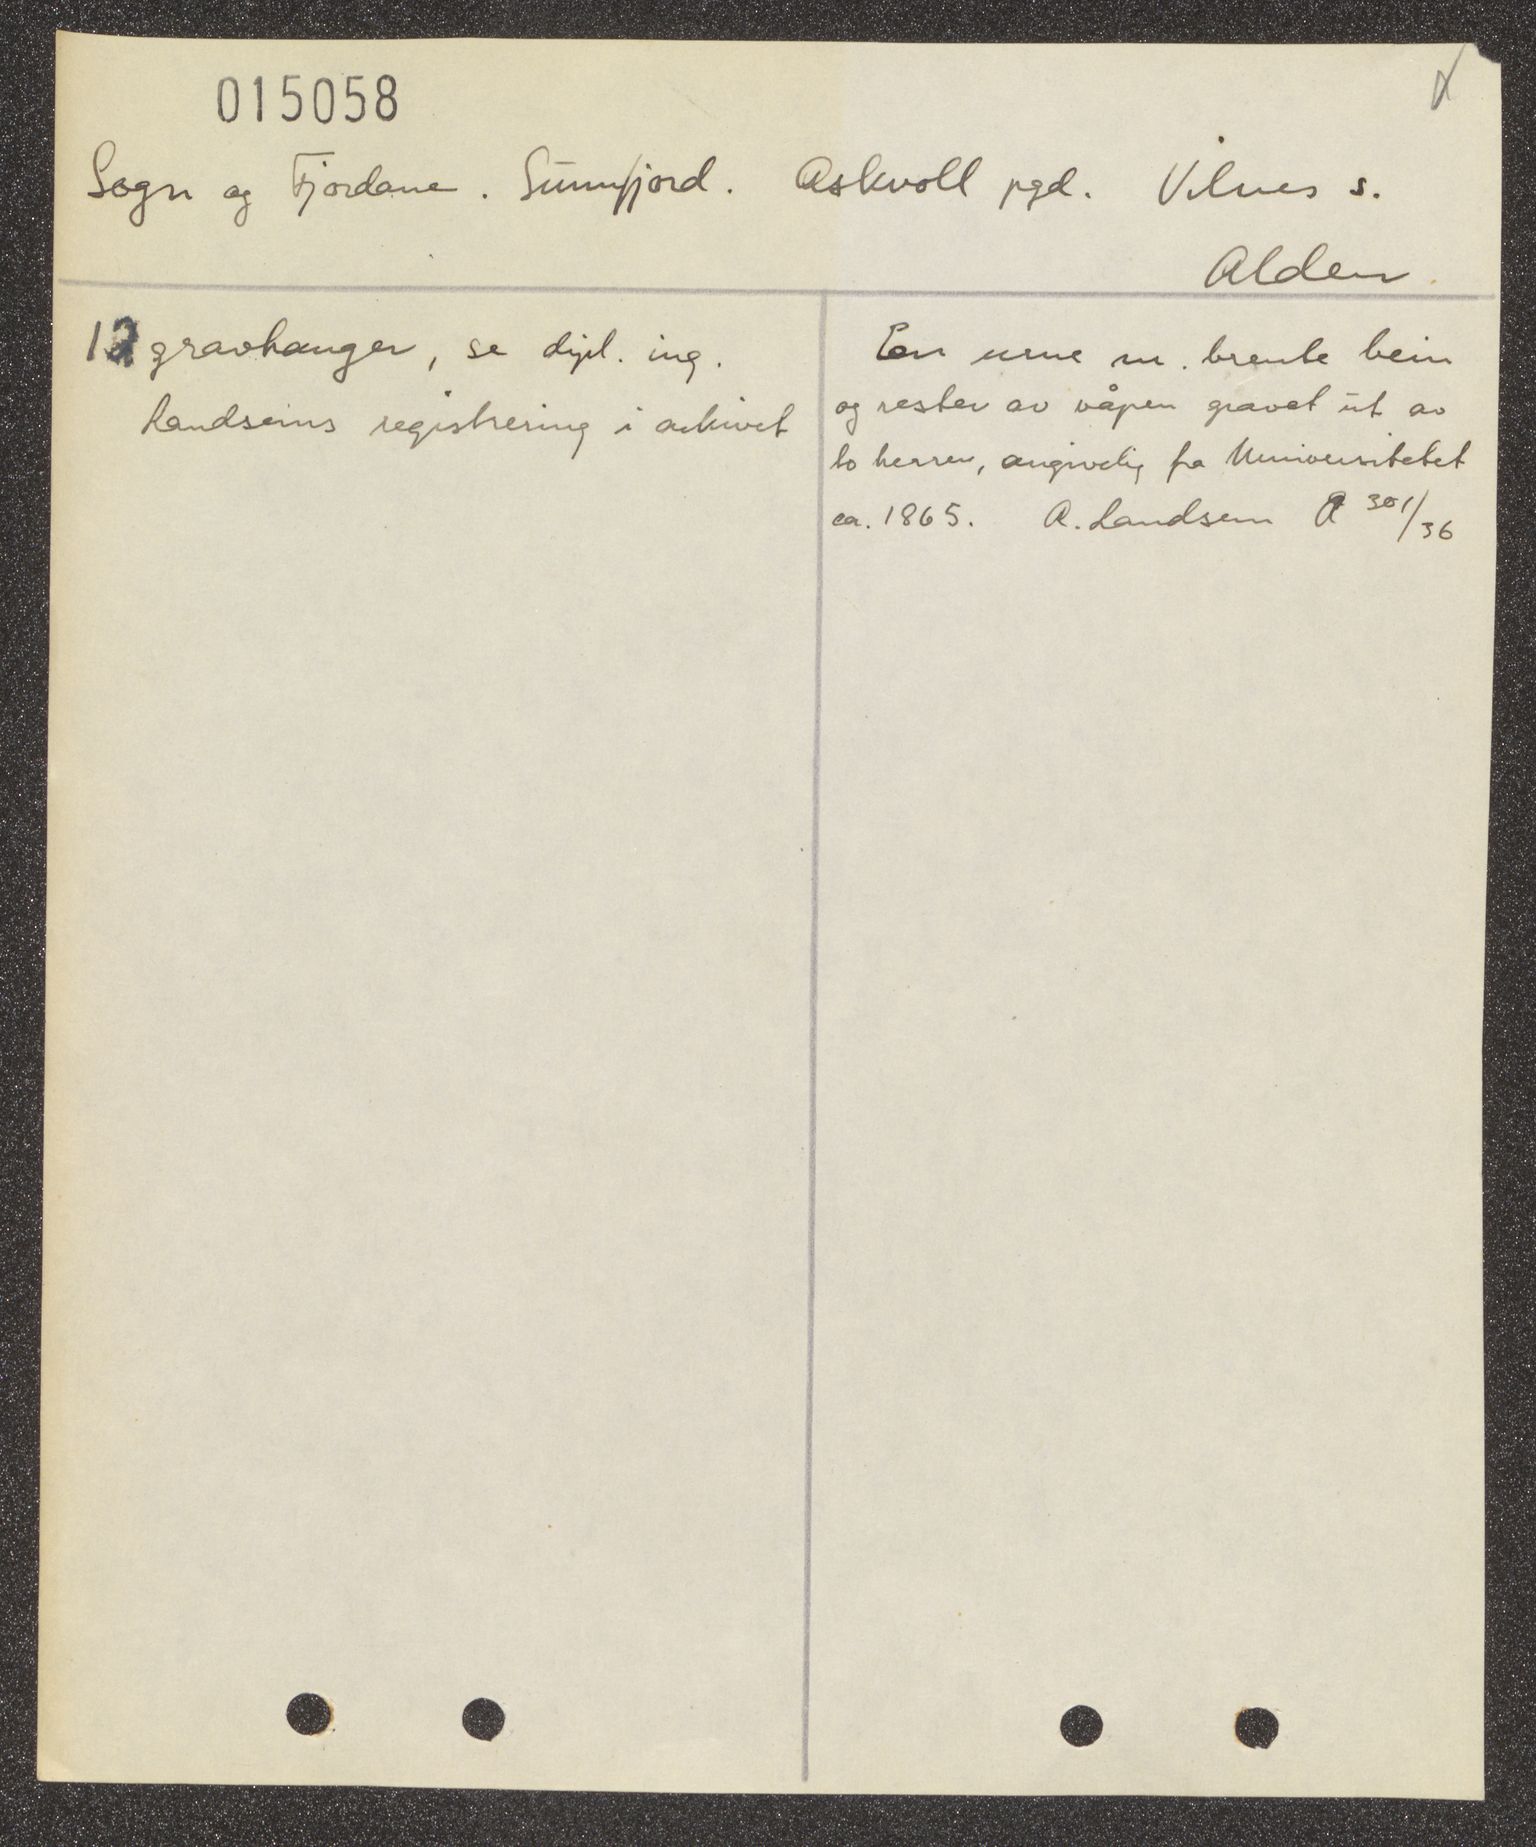 015058
Sogn og Fjordane. Sunnfjord. Askvoll pgd. Vilnes s.
Alden
12 gravhauger, se dipl. ing.
Landsems registrering i arkivet
En urne m. brente bein
og rester av våpen gravet ut av
to herrer, angivelig fra Universitetet
ca. 1865. A. Landsem A 301/36